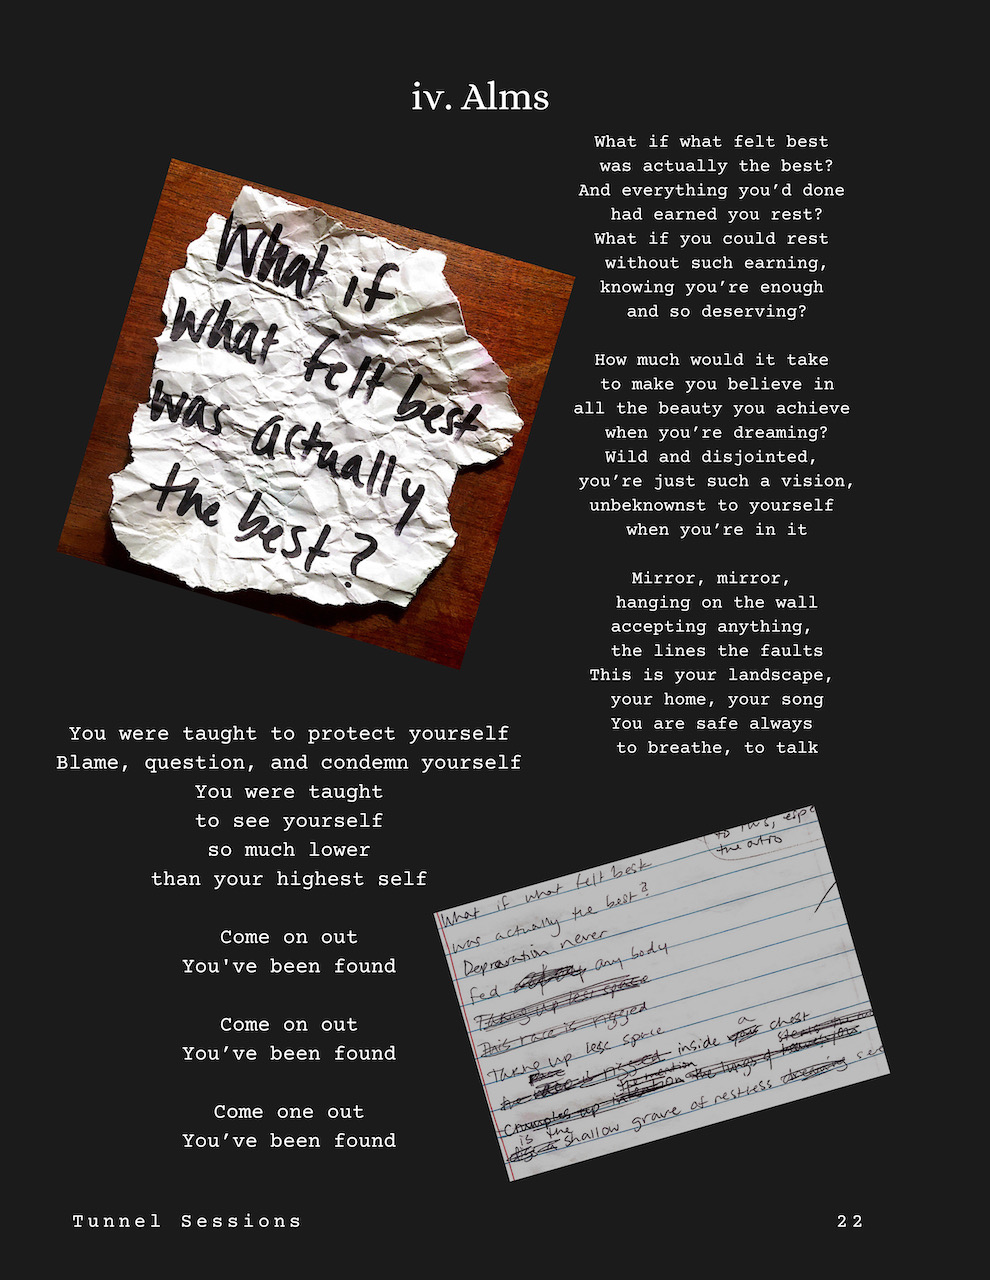 iv. Alms
What if
what felt best
was actually
the best?
What if what felt best
was actually the best?
And everything you’d done
had earned you rest?
What if you could rest
without such earning,
knowing you’re enough
and so deserving?
How much would it take
to make you believe in
all the beauty you achieve
when you’re dreaming?
Wild and disjointed,
you’re just such a vision,
unbeknownst to yourself
when you’re in it
Mirror, mirror,
hanging on the wall
accepting anything,
the lines the faults
This is your landscape,
your home, your song
You are safe always
to breathe, to talk
You were taught to protect yourself
Blame, question, and condemn yourself
You were taught
to see yourself
so much lower
than your highest self
Come on out
You've been found
Come on out
You’ve been found
Come one out
You’ve been found
to this,
the outro
What if what felt best
was actually the best?
Deprivation never
fed any body
Taking up less space
This race is rigged
Taking up less space
rigged inside a your chest
crumples up the lungs of
is the shallow grave of restless dreaming
Tunnel Sessions
22